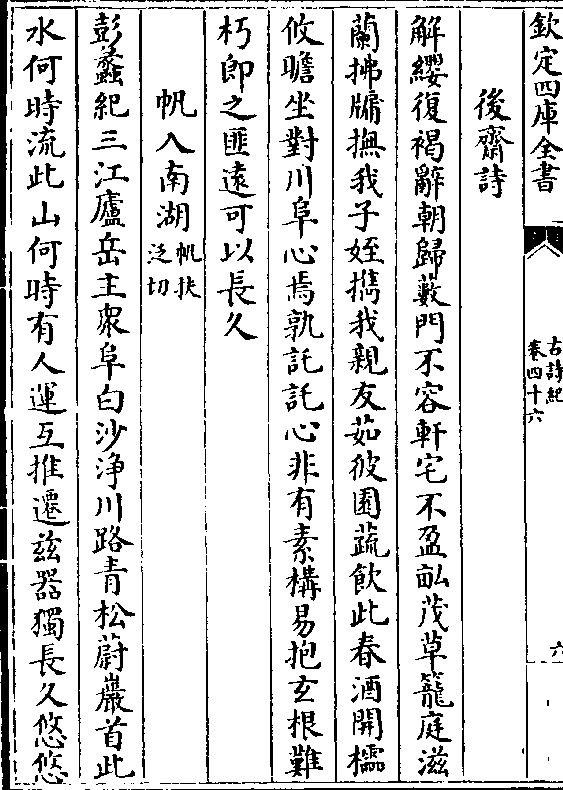 欽定四庫全書
古詩紀
卷四十六
六
後齋詩
解纓復褐辭朝歸藪門不容軒宅不盈畝茂草籠庭滋
蘭拂牖撫我子姪擕我親友茹彼園蔬飲此春酒開櫺
攸瞻坐對川阜心焉孰託託心非有素構易抱玄根難
朽即之匪遠可以長久
帆入南湖帆扶
泛切
彭蠡紀三江廬岳主衆阜白沙淨川路青松蔚巖首此
水何時流此山何時有人運互推遷兹器獨長久悠悠